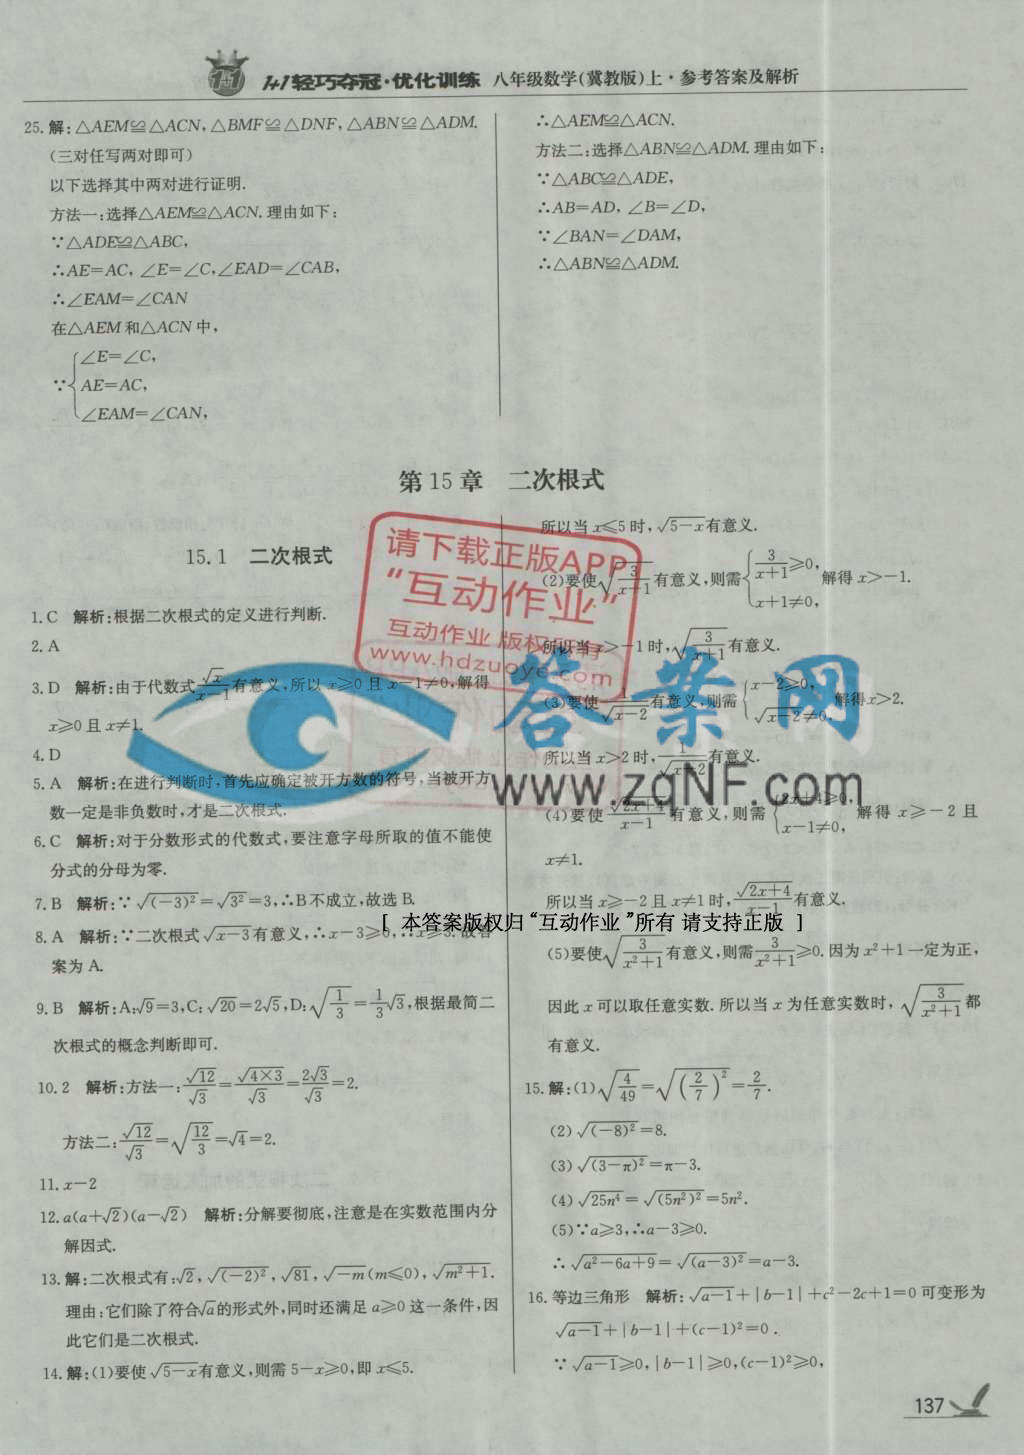 1+1轻巧夺冠·优化训练 八年级数学(冀教版)上·参考答案及解析
25.解:△AEM≌△ACN,△BMF≌△DNF,△ABN≌△ADM.
(三对任写两对即可)
以下选择其中两对进行证明.
方法一:选择△AEM≌△ACN.理由如下:
∵△ADE≌△ABC,
∴AE=AC,∠E=∠C,∠EAD=∠CAB,
∴∠EAM=∠CAN
在△AEM和△ACN中,
∵{∠E=∠C,
AE=AC,
∠EAM=∠CAN,
∴△AEM≌△ACN.
方法二:选择△ABN≌△ADM.理由如下:
∵△ABC≌△ADE,
∴AB=AD,∠B=∠D,
∵∠BAN=∠DAM,
∴△ABN≌△ADM.
第15章 二次根式
15.1 二次根式
1.C 解析:根据二次根式的定义进行判断.
2.A
3.D 解析:由于代数式√x/(x-1)有意义,所以x≥0且x-1≠0,解得
x≥0且x≠1.
4.D
5.A 解析:在进行判断时,首先应确定被开方数的符号,当被开方
数一定是非负数时,才是二次根式.
6.C 解析:对于分数形式的代数式,要注意字母所取的值不能使
分式的分母为零.
7.B 解析:∵√(-3)²=√3²=3,∴B不成立,故选B.
8.A 解析:∵二次根式√x-3有意义,∴x-3≥0,∴x≥3.故答
案为A.
9.B 解析:A:√9=3,C:√20=2√5,D:√(1/3)=1/3√3,根据最简二
次根式的概念判断即可.
10.2 解析:方法一:√12/√3=√(4×3)/√3=2√3/√3=2.
方法二:√12/√3=√(12/3)=√4=2.
11.x-2
12.a(a+√2)(a-√2) 解析:分解要彻底,注意是在实数范围内分
解因式.
13.解:二次根式有:√2,√(-2)²,√81,√-m(m≤0),√(m²+1).
理由:它们除了符合√a的形式外,同时还满足a≥0这一条件,因
此它们是二次根式.
14.解:(1)要使√(5-x)有意义,则需5-x≥0,即x≤5.
所以当x≤5时,√(5-x)有意义.
(2)要使√(3/(x+1))有意义,则需{3/(x+1)≥0, x+1≠0, 解得x>-1.
所以当x>-1时,√(3/(x+1))有意义.
(3)要使1/√(x-2)有意义,则需{x-2≥0, √(x-2)≠0, 解得x>2.
所以当x>2时,1/√(x-2)有意义.
(4)要使√(2x+4)/(x-1)有意义,则需{2x+4≥0, x-1≠0, 解得x≥-2且
x≠1.
所以当x≥-2且x≠1时,√(2x+4)/(x-1)有意义.
(5)要使√(3/(x²+1))有意义,则需3/(x²+1)≥0.因为x²+1一定为正,
因此x可以取任意实数.所以当x为任意实数时,√(3/(x²+1))都
有意义.
15.解:(1)√(4/49)=√(2/7)²=2/7.
(2)√(-8)²=8.
(3)√(3-π)²=π-3.
(4)√25n⁴=√(5n²)²=5n².
(5)∵a≥3,∴a-3≥0.
∴√(a²-6a+9)=√(a-3)²=a-3.
16.等边三角形 解析:√(a-1)+|b-1|+c²-2c+1=0可变形为
√(a-1)+|b-1|+(c-1)²=0.
∵√(a-1)≥0,|b-1|≥0,(c-1)²≥0,
137
请下载正版APP
“互动作业”
互动作业 版权所有
www.hdzuoye.com
答案网
www.zqNF.com
[ 本答案版权归“互动作业”所有 请支持正版 ]